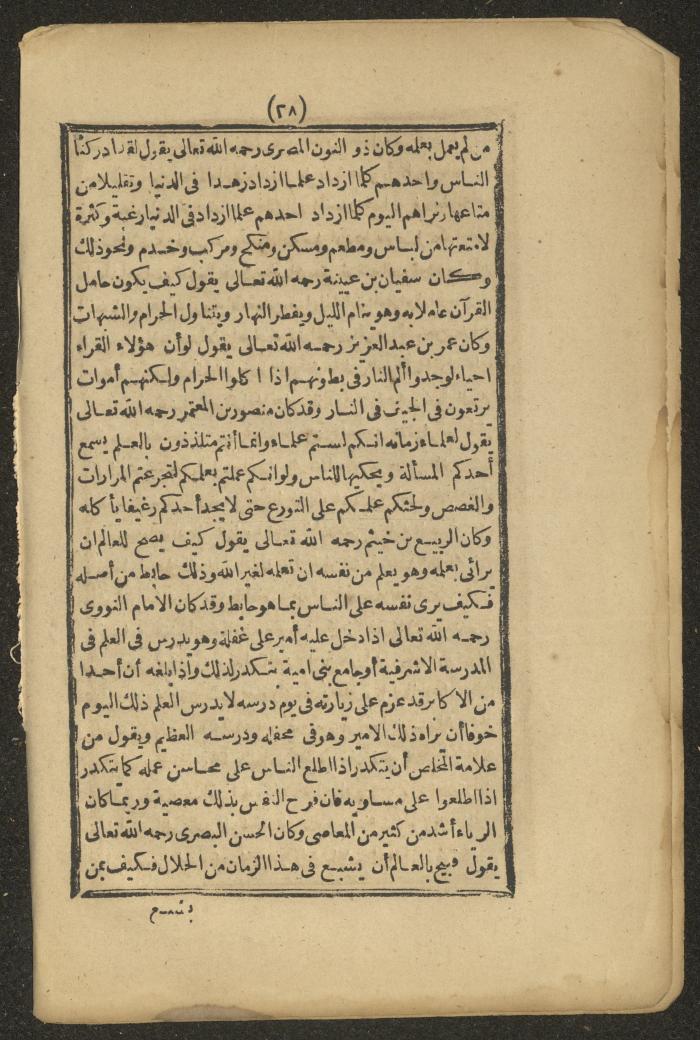 (٢٨)
من لم يعمل بعلمه وكان ذو النون المصرى رحمه الله تعالى يقول لقد ادركنا
الناس واحدهم كلما ازداد علما ازداد زهدا فى الدنيا وتقليلا من
متاعها ونراهم اليوم كلما ازداد احدهم علما ازداد فى الدنيا رغبة وكثرة
لامتعتها من لباس ومطعم ومسكن ومنكح ومركب وخدم ونحو ذلك
وكان سفيان بن عيينة رحمه الله تعالى يقول كيف يكون حامل
القرآن عاملا به وهو ينام الليل ويفطر النهار ويتناول الحرام والشبهات
وكان عمر بن عبد العزيز رحمه الله تعالى يقول لو أن هؤلاء القراء
احياء لوجدوا ألم النار فى بطونهم اذا اكلوا الحرام ولكنهم أموات
يرتعون فى الجيف فى النار وقد كان منصور بن المعتمر رحمه الله تعالى
يقول لعلماء زمانه انكم لستم علماء وانما أنتم متلذذون بالعلم يسمع
أحدكم المسألة ويحكيها للناس ولو انكم عملتم بعلمكم لتجرعتم المرارات
والغصص ولحثكم علمكم على التورع حتى لا يجد أحدكم رغيفا يأكله
وكان الربيع بن خيثم رحمه الله تعالى يقول كيف يصح للعالم ان
يرائى بعلمه وهو يعلم من نفسه ان تعلمه لغير الله وذلك حابط من أصله
فكيف يرى نفسه على الناس بما هو حابط وقد كان الامام النووى
رحمه الله تعالى اذا دخل عليه أمير على غفلة وهو يدرس فى العلم فى
المدرسة الاشرفية أو جامع بنى امية يتكدر لذلك واذا بلغه أن أحدا
من الاكابر قد عزم على زيارته فى يوم درسه لا يدرس العلم ذلك اليوم
خوفا أن يراه ذلك الامير وهو فى محفله ودرسه العظيم ويقول من
علامة المخلص أن يتكدر اذا اطلع الناس على محاسن عمله كما يتكدر
اذا اطلعوا على مساويه فان فرح النفس بذلك معصية وربما كان
الرياء أشد من كثير من المعاصى وكان الحسن البصرى رحمه الله تعالى
يقول قبيح بالعالم أن يشبع فى هذا الزمان من الحلال فكيف بمن
يشبع